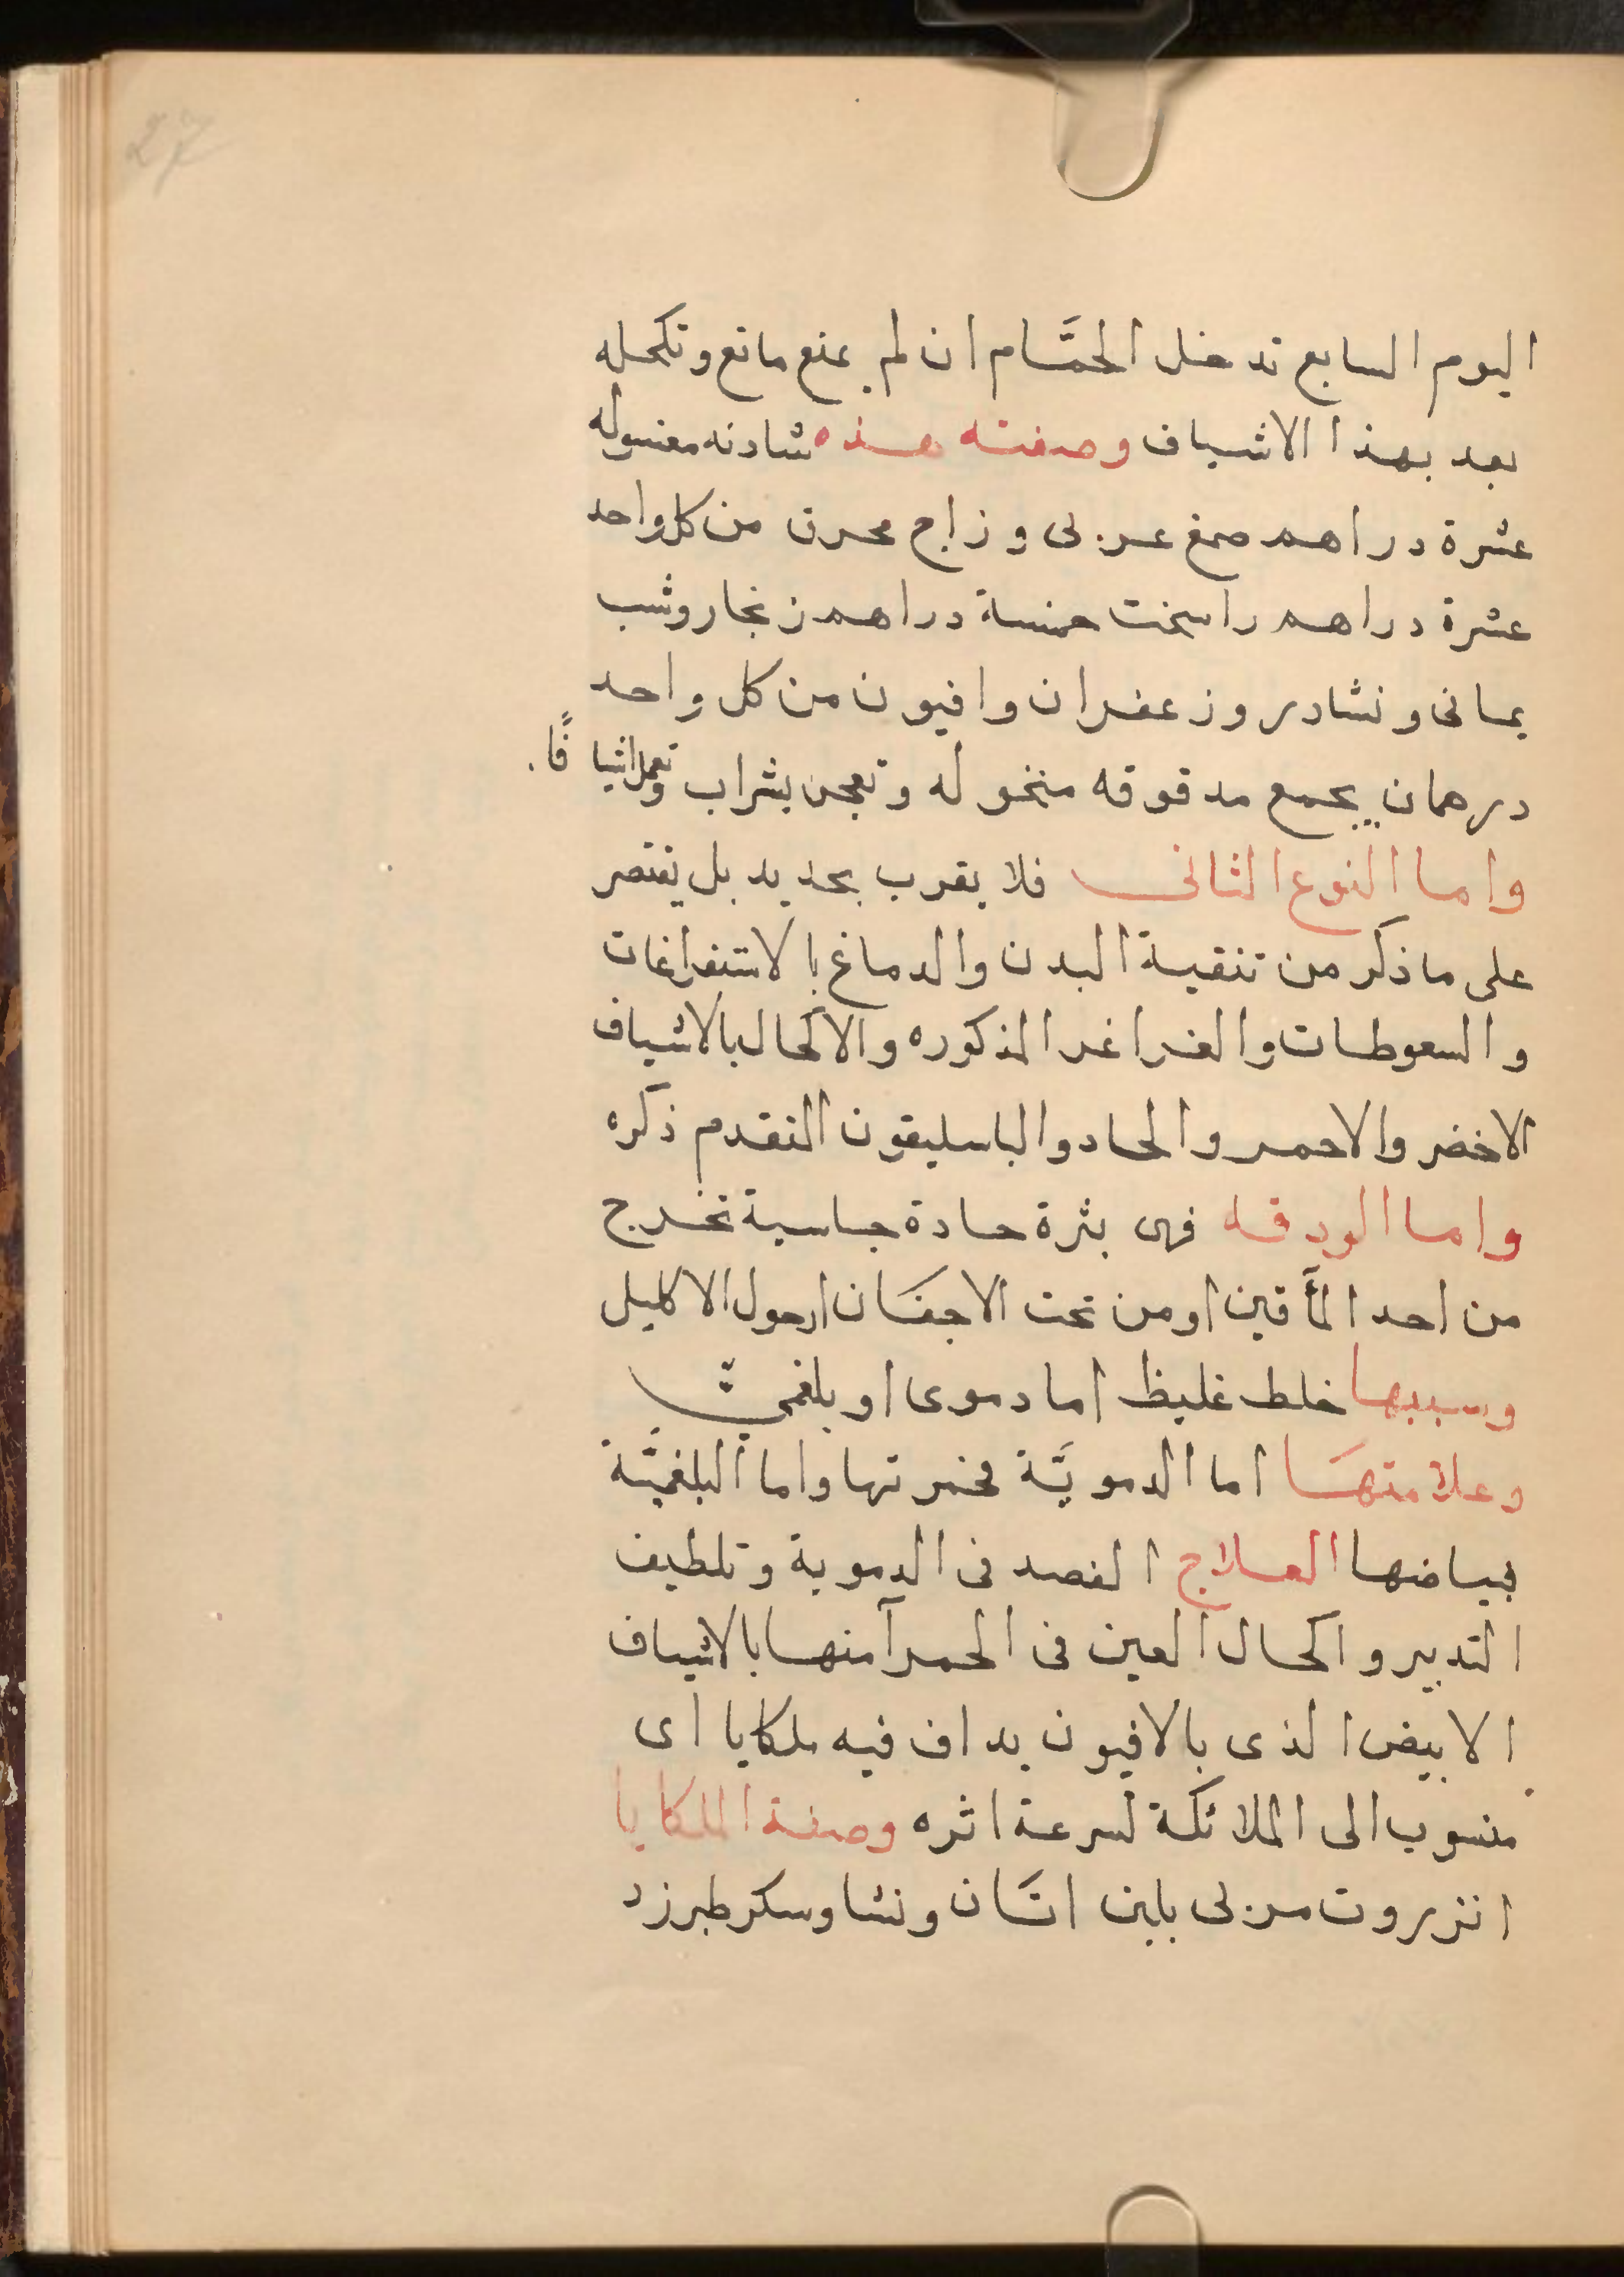 27
اليوم السابع تدخل الحمَّام ان لم يمنع مانع وتكحله
بعد بهذا الاشياف وصفته هذه شادنه مغسوله
عشرة دراهم صمغ عربى و زاج محرق من كل واحد
عشرة دراهم راسخت خمسة دراهم زنجار وشب
يمانى و نشادر وزعفران وافيون من كل واحد
درهمان يجمع مدقوقه منخوله وتعجن بشراب وتعمل اشيافًا.
واما النوع الثانى فلا يقرب بحديد بل يقتصر
على ما ذكر من تنقية البدن والدماغ بالاستفراغات
والسعوطات والغراغر المذكوره والاكحال بالاشياف
الاخضر والاحمر والحاد والباسليقون المتقدم ذكره
واما الودقه فهى بثرة حادة جاسية تخرج
من احد المأقين او من تحت الاجفان او حول الاكليل
وسببها خلط غليظ اما دموى او بلغمىّ
وعلامتها اما الدمويَّة فحمرتها واما البلغميَّة
فبياضها العلاج الفصد فى الدموية وتلطيف
التدبير واكحال العين فى الحمرآ منها بالاشياف
الابيض الذى بالافيون يداف فيه ملكايا اى
منسوب الى الملائكة لسرعة اثره وصفة الملكايا
انزروت مربى بلبن اتان ونشا وسكر طبرزد